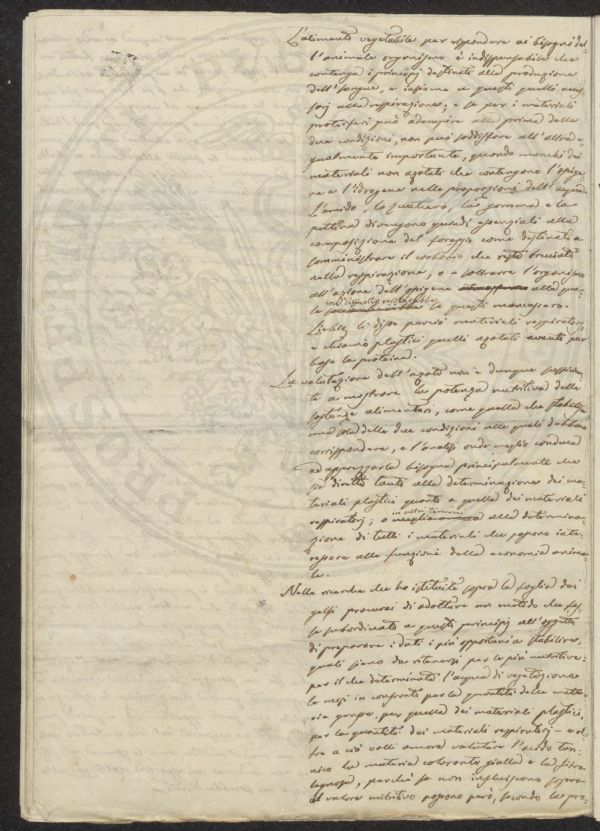 L'alimento vegetabile per rispondere ai bisogni del-
l'animale organismo è indispensabile che
contenga i principj destinati alla produzione
dell'sangue, e insieme a questi quelli neces-
sarj alla respirazione; e se per i materiali
proteiferi può adempire alla prima delle
due condizioni, non può soddisfare all'altra e-
gualmente importante, quando manchi dei
materiali non azotati che contengono l'ossige-
ne e l'idrogene nelle proporzioni dell'acqua.
L'amido, lo zucchero, la gomma e la
pettina divengono quindi essenziali alla
composizione del foraggio come destinati a
somministrare il carbonio che resta bruciato
nella respirazione, o a sottrarre l'organismo
all'azione dell'ossigene alla qua-
le con difficoltà resisterebbe se questi mancassero.
Liebig li disse perciò materiali respiratorj
e chiamò plastici quelli azotati aventi per
base la proteina.
La valutazione dell'azoto non è dunque sufficien-
te a mostrare la potenza nutritiva delle
sostanze alimentari, come quella che stabilisce
una sola delle due condizioni alle quali debbono
corrispondere, e l'analisi onde meglio conduca
ad apprezzarla bisogna principalmente che
sia diretta tanto alla determinazione dei ma-
teriali plastici quanto a quella dei materiali
respiratorj; o in altri termini alla determina-
zione di tutti i materiali che possono inte-
ressare alle funzioni della economia anima-
le.
Nelle ricerche che ho istituite sopra la foglia dei
gelsi procurai di adottare un metodo che fos-
se subordinato a questi principj all'oggetto
di preparare i dati i più opportuni a stabilire,
quali siano da ritenersi per le più nutritive:
per il che determinata l'acqua di vegetazione
le misi in confronto per la quantità della mate-
ria grassa, per quella dei materiali plastici,
per la quantità dei materiali respiratorj – e ol-
tre a ciò volli ancora valutare l'acido tan-
nico la materia colorante gialla e la fibra
legnosa, perchè se non influiscono sopra
al valore nutritivo possono però, secondo le pro-